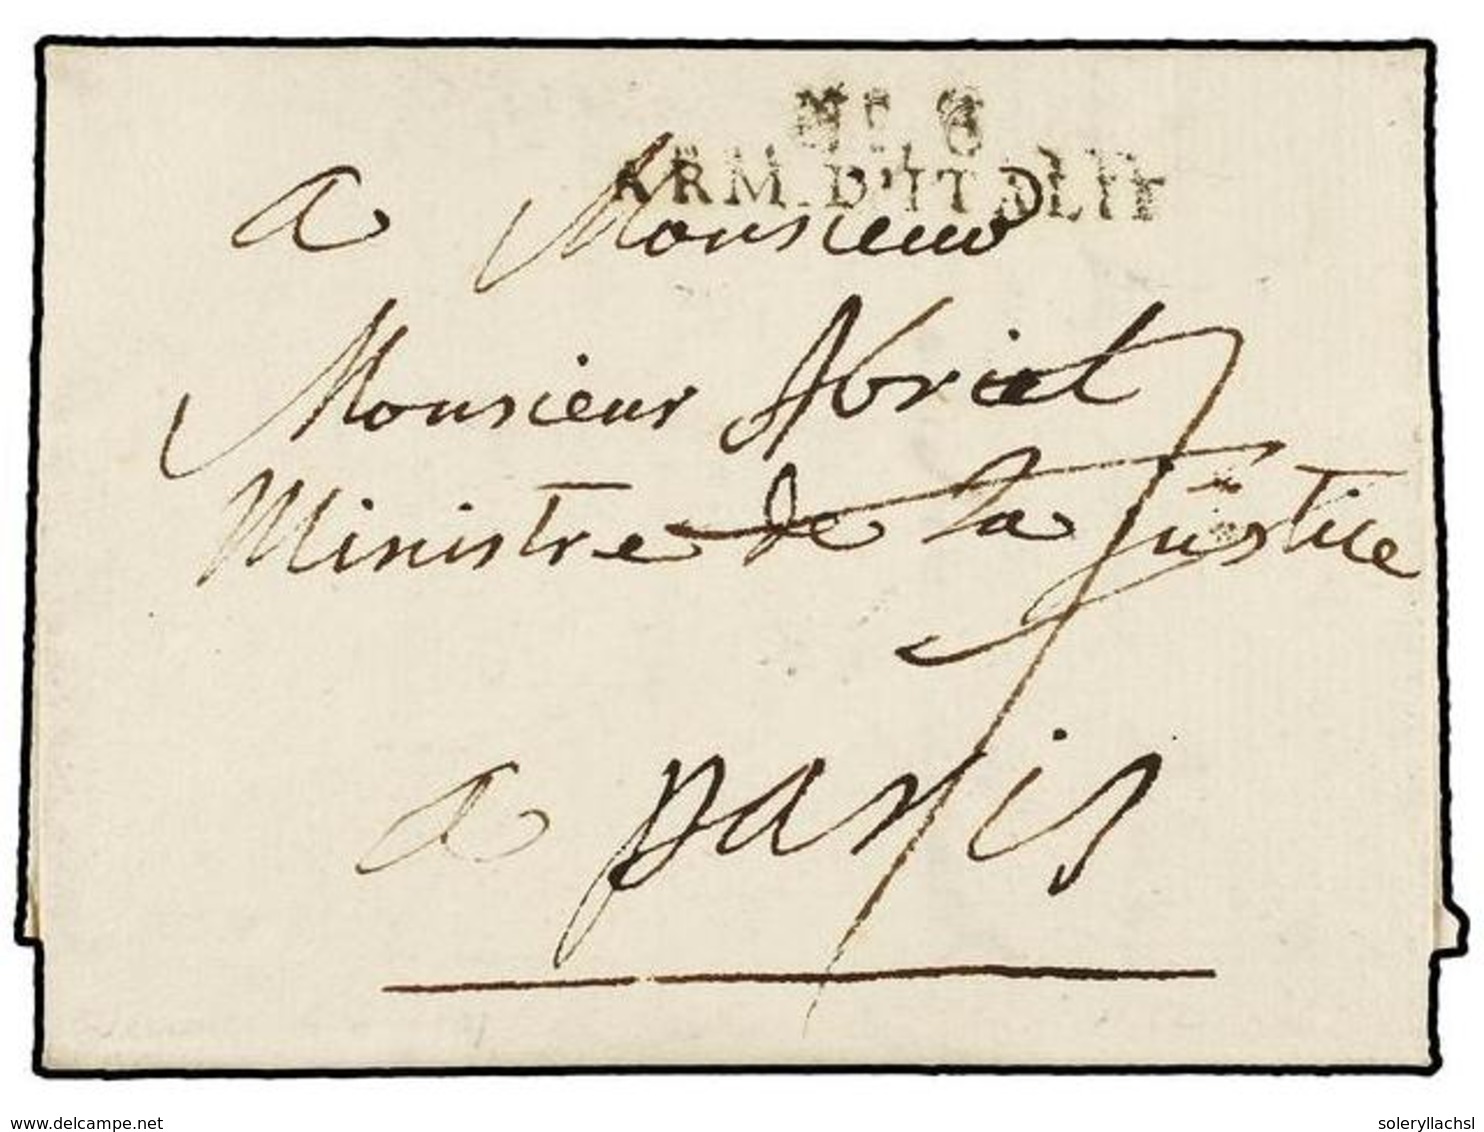 Nº. 6
ARM. D'ITALIE
a Monsieur
Monsieur Abrial
Ministre de la Justice
a paris
delcampe.net
soleryllachsl